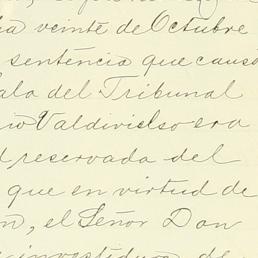 veinte de Octubre
sentencia que causó
del Tribunal
Valdivielso era
reservada del
que en virtud de
el Señor Don
investidura de